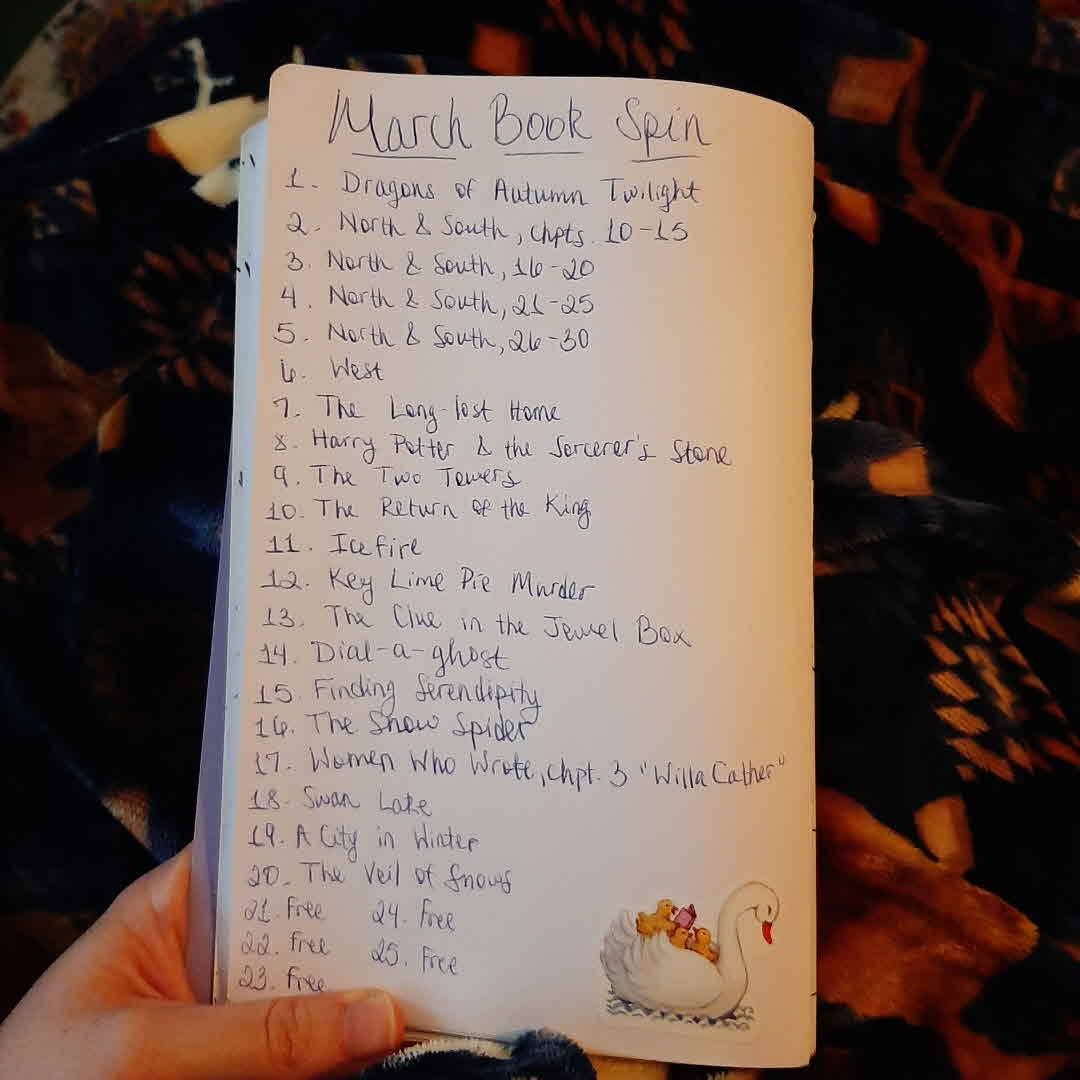 March Book Spin
1. Dragons of Autumn Twilight
2. North & South, chpts. 10-15
3. North & South, 16-20
4. North & South, 21-25
5. North & South, 26-30
6. West
7. The Long-lost Home
8. Harry Potter & the Sorcerer's Stone
9. The Two Towers
10. The Return of the King
11. Icefire
12. Key Lime Pie Murder
13. The Clue in the Jewel Box
14. Dial-a-ghost
15. Finding Serendipity
16. The Snow Spider
17. Women Who Wrote, chpt. 3 "Willa Cather"
18. Swan Lake
19. A City in Winter
20. The Veil of Snows
21. Free 24. Free
22. Free 25. Free
23. Free